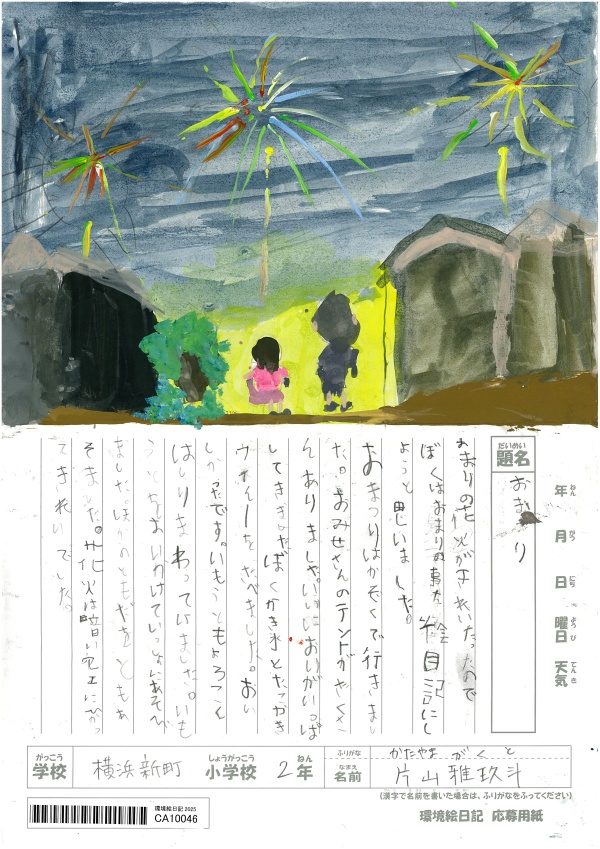 だいめい
題名
おまつり
年 ねん
月 がつ
日 にち
曜日 ようび
天気 てんき
おまりの花火がきれいたったので
ぼくはおまりの事を絵日記にし
ようと思いました。
おまつりはかぞくで行きまし
た。おみせさんのテントがたくさ
んありました。いいにおいがいっぱ
してきた。ぼくかき氷とたこやき
ウィーをたべました。おい
しかったです。いもうともよろこん
はしりまわっていました。いも
うとちおいかけていっしょにあそび
ました。ほかのともだちともあ
そました。花火は暗い空に
てきれいでした。
がっこう
学校
横浜新町
しょうがっこう
小学校
2
ねん
年
ふりがな
かたやま がくと
なまえ
名前
片山雅玖斗
(漢字で名前を書いた場合は、ふりがなをふってください)
環境絵日記 2025
CA10046
環境絵日記 応募用紙